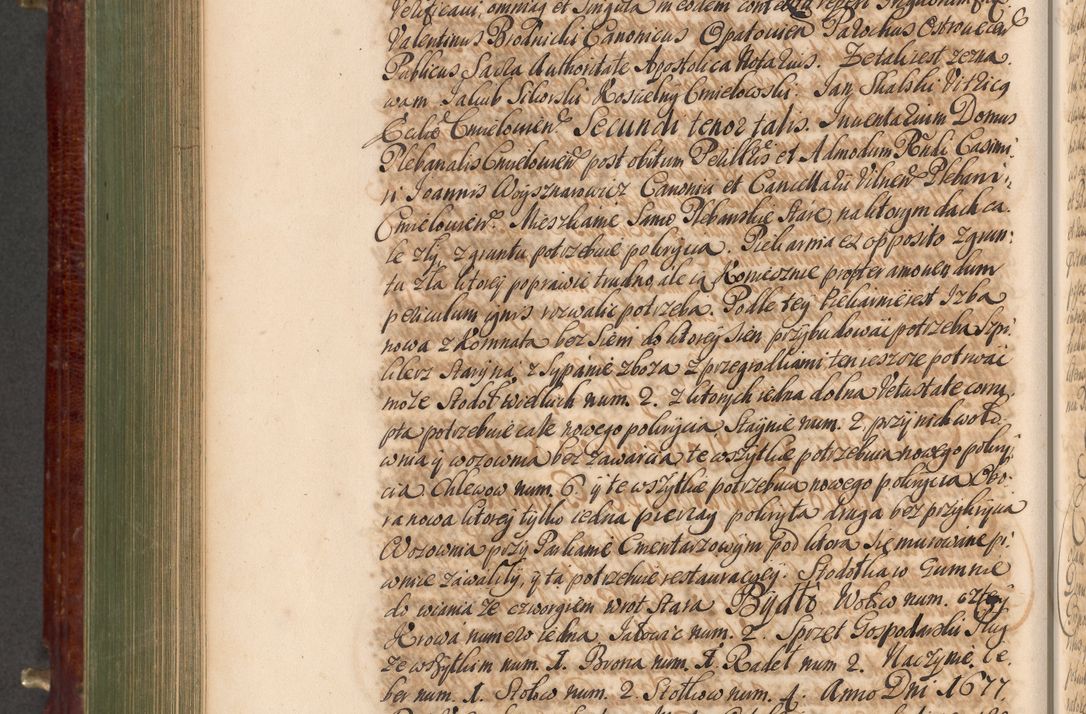 Velificavi, omniaq et singula in eodem contextu reperi. In quorum fidem
Valentinus Brodnicki Canonicus Opatovien Parochus Ostrovien
Publicus Sacra Authoritate Apostolica Notarius. Ze tak iest zezna
wam Jakub Sikorski Koscielny Cmielowski. Jan Skalski Vitricq
Eccliae Cmielovien. Secundi tenor talis. Inventarium Domus
Plebanalis Cmielovien post obitum Perillris et Admodum Rndi Casimi
ri Joannis Woysznarowicz Canonici et Cancellarii Vilnen Plebani
Cmielovien. Mieszkanie Samo Plebanskie stare na ktorym dach ca
le zły, z gruntu potrzebuie pokrycia. Piekarnia ex opposito z grun
tu zła ktorej poprawic trudno ale ią koniecznie propter amovendum
periculum ignis rozwalic potrzeba. Podle tey Piekarnie iest Izba
nowa z komnata bez sieni do ktorej sien przybudowac potrzeba Szpi
klerz stary na zsypanie zboza z przegrodkami ten ieszcze potrwac
może Stodoł wielkich num. 2. z ktorych iedna dolna Vetustate corru
pta potrzebuie całe nowego pokrycia Staynie num. 2. przy nich woło
wnia y wozownia bez zawarcia te wszytkie potrzebuia nowego pokry
cia Chlewow num. 6. y te wszytkie potrzebuia nowego pokrycia Obo
ra nowa ktorej tylko iedna pierzaj pokryta druga bez przykrycia
Wozownia przy Parkanie Cmentarzowym pod ktora się murowane pi
wnice zawaliły, y ta potrzebuie restauracyej. Stodołka w Gumnie
do wiania ze czworgiem wrot stara Bydło Wołow num. cztery
Krowa numero iedna Jałowic num. 2. Sprzęt Gospodarski Pług
ze wszytkim num. 1. Brona num. 1. Radeł num 2. Naczynie Ce
ber num. 1. Stołow num. 2. Stołkow num. 4. Anno Dni 1677.